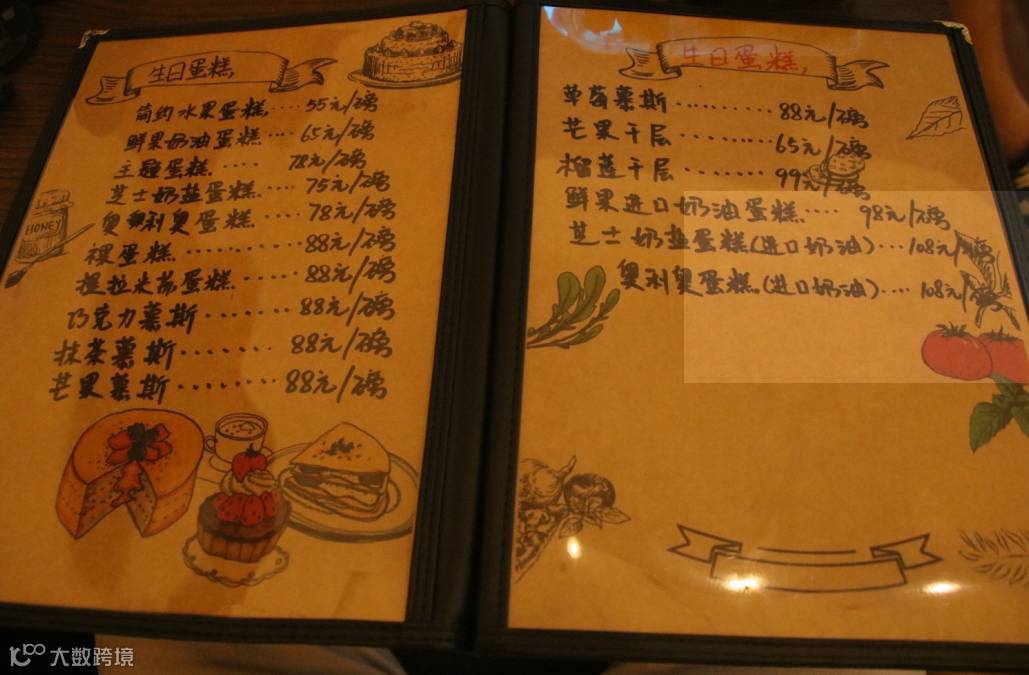 生日蛋糕
简约水果蛋糕····55元/磅
鲜果奶油蛋糕····65元/磅
主题蛋糕····78元/磅
芝士奶盐蛋糕····75元/磅
奥利奥蛋糕····78元/磅
裸蛋糕·····88元/磅
提拉米苏蛋糕·····88元/磅
巧克力慕斯·······88元/磅
抹茶慕斯·······88元/磅
芒果慕斯········88元/磅
HONEY
生日蛋糕
草莓慕斯··········88元/磅
芒果千层·········65元/磅
榴莲千层·······99元/磅
鲜果进口奶油蛋糕····98元/磅
芝士奶盐蛋糕(进口奶油)···108元/磅
奥利奥蛋糕(进口奶油)····108元/磅
大数跨境